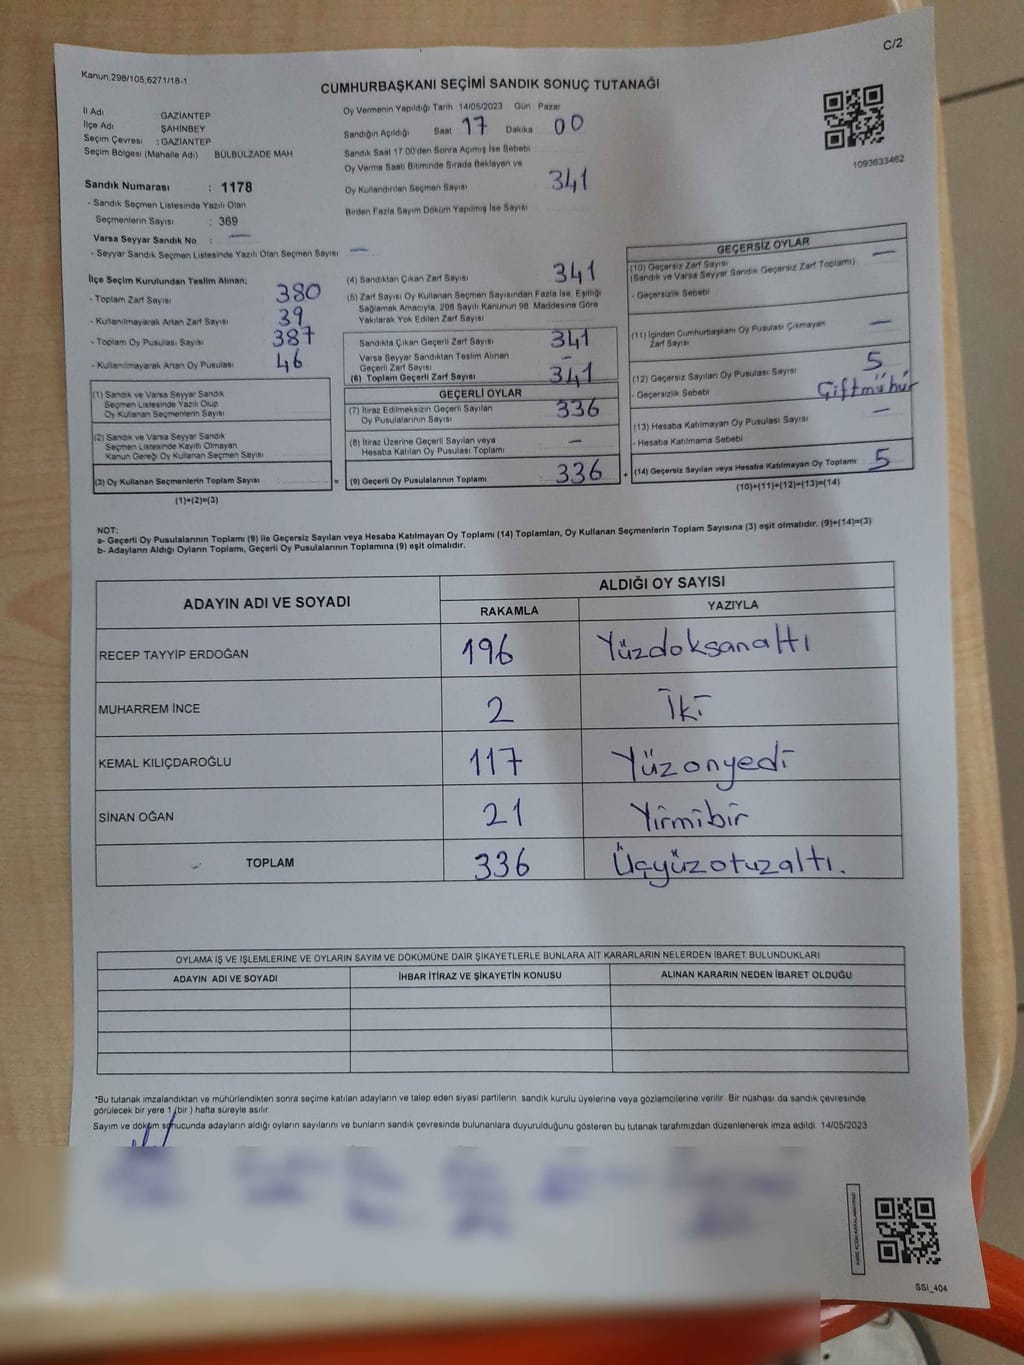 C/2
Kanun,298/105,6271/18-1
CUMHURBAŞKANI SEÇİMİ SANDIK SONUÇ TUTANAĞI
1093633462
İl Adı : GAZİANTEP
İlçe Adı ŞAHİNBEY
Seçim Çevresi : GAZİANTEP
Seçim Bölgesi (Mahalle Adı) BÜLBÜLZADE MAH
Sandık Numarası : 1178
- Sandık Seçmen Listesinde Yazılı Olan
Seçmenlerin Sayısı : 369
Varsa Seyyar Sandık No : —
- Seyyar Sandık Seçmen Listesinde Yazılı Olan Seçmen Sayısı —
Oy Vermenin Yapıldığı Tarih 14/05/2023 Gün Pazar
Sandığın Açıldığı Saat 17 Dakika 00
Sandık Saat 17.00'den Sonra Açımış İse Sebebi
Oy Verme Saati Bitiminde Sırada Bekleyen ve
Oy Kullandırılan Seçmen Sayısı 341
Birden Fazla Sayım Döküm Yapılmış İse Sayısı
İlçe Seçim Kurulundan Teslim Alınan;
- Toplam Zarf Sayısı 380
- Kullanılmayarak Artan Zarf Sayısı 39
- Toplam Oy Pusulası Sayısı 387
- Kullanılmayarak Artan Oy Pusulası 46
(1) Sandık ve Varsa Seyyar Sandık
Seçmen Listesinde Yazılı Olup
Oy Kullanan Seçmenlerin Sayısı
(2) Sandık ve Varsa Seyyar Sandık
Seçmen Listesinde Kayıtlı Olmayan
Kanun Gereği Oy Kullanan Seçmen Sayısı
(3) Oy Kullanan Seçmenlerin Toplam Sayısı =
(1)+(2)=(3)
(4) Sandıktan Çıkan Zarf Sayısı 341
(5) Zarf Sayısı Oy Kullanan Seçmen Sayısından Fazla İse, Eşitliği
Sağlamak Amacıyla, 298 Sayılı Kanunun 98. Maddesine Göre
Yakılarak Yok Edilen Zarf Sayısı
Sandıkta Çıkan Geçerli Zarf Sayısı 341
Varsa Seyyar Sandıktan Teslim Alınan
Geçerli Zarf Sayısı –
(6) Toplam Geçerli Zarf Sayısı 341
GEÇERLİ OYLAR
(7) İtiraz Edilmeksizin Geçerli Sayılan
Oy Pusulalarının Sayısı 336
(8) İtiraz Üzerine Geçerli Sayılan veya
Hesaba Katılan Oy Pusulası Toplamı —
(9) Geçerli Oy Pusulalarının Toplamı 336
GEÇERSİZ OYLAR
(10) Geçersiz Zarf Sayısı —
(Sandık ve Varsa Seyyar Sandık Geçersiz Zarf Toplamı)
- Geçersizlik Sebebi
(11) İçinden Cumhurbaşkanı Oy Pusulası Çıkmayan
Zarf Sayısı —
(12) Geçersiz Sayılan Oy Pusulası Sayısı 5
- Geçersizlik Sebebi Çiftmühür
(13) Hesaba Katılmayan Oy Pusulası Sayısı —
- Hesaba Katılmama Sebebi
(14) Geçersiz Sayılan veya Hesaba Katılmayan Oy Toplamı 5
(10)+(11)+(12)+(13)=(14)
NOT:
a- Geçerli Oy Pusulalarının Toplamı (9) ile Geçersiz Sayılan veya Hesaba Katılmayan Oy Toplamı (14) Toplamları, Oy Kullanan Seçmenlerin Toplam Sayısına (3) eşit olmalıdır. (9)+(14)=(3)
b- Adayların Aldığı Oyların Toplamı, Geçerli Oy Pusulalarının Toplamına (9) eşit olmalıdır.
ADAYIN ADI VE SOYADI ALDIĞI OY SAYISI
RAKAMLA YAZIYLA
RECEP TAYYİP ERDOĞAN 196 Yüzdoksanaltı
MUHARREM İNCE 2 İki
KEMAL KILIÇDAROĞLU 117 Yüzonyedi
SİNAN OĞAN 21 Yirmibir
TOPLAM 336 Üçyüzotuzaltı.
OYLAMA İŞ VE İŞLEMLERİNE VE OYLARIN SAYIM VE DÖKÜMÜNE DAİR ŞİKAYETLERLE BUNLARA AİT KARARLARIN NELERDEN İBARET BULUNDUKLARI
ADAYIN ADI VE SOYADI İHBAR İTİRAZ VE ŞİKAYETİN KONUSU ALINAN KARARIN NEDEN İBARET OLDUĞU
*Bu tutanak imzalandıktan ve mühürlendikten sonra seçime katılan adayların ve talep eden siyasi partilerin sandık kurulu üyelerine veya gözlemcilerine verilir. Bir nüshası da sandık çevresinde
görülecek bir yere 1 (bir ) hafta süreyle asılır.
Sayım ve döküm sonucunda adayların aldığı oyların sayılarını ve bunların sandık çevresinde bulunanlara duyurulduğunu gösteren bu tutanak tarafımızdan düzenlenerek imza edildi. 14/05/2023
SSI_404